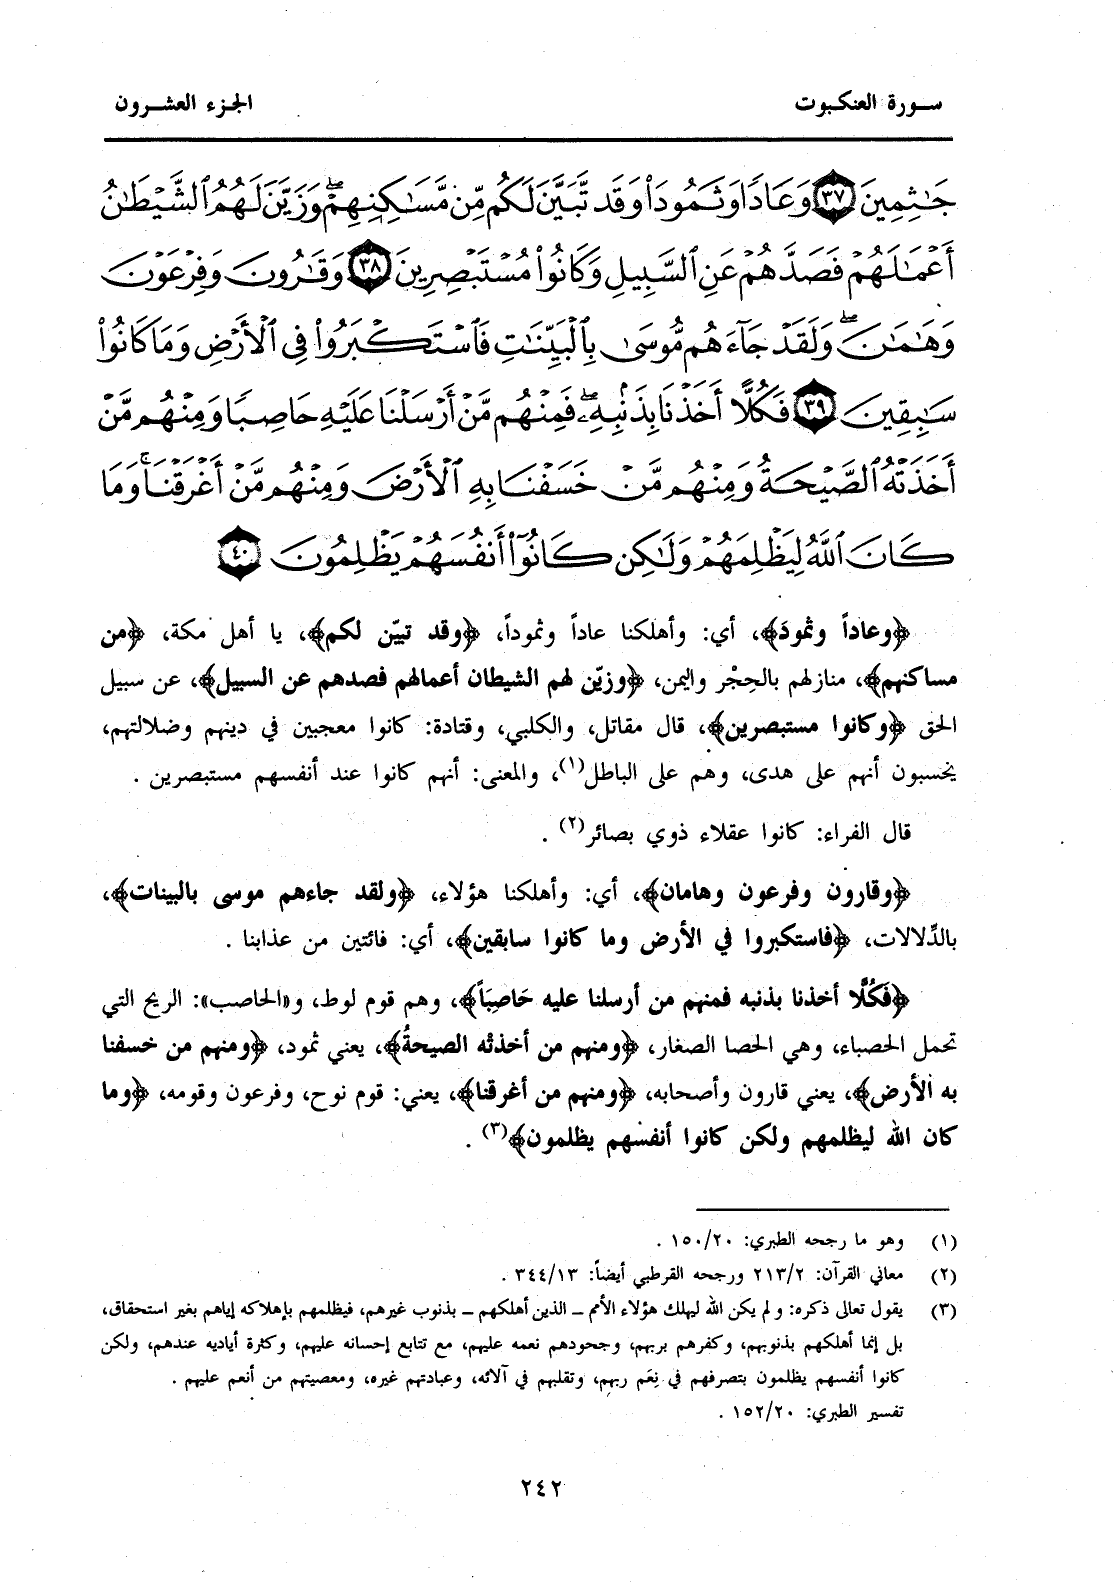 سورة العنكبوت
الجزء العشرون
جَٰثِمِينَ ٣٧ وَعَادًا وَثَمُودَاْ وَقَد تَّبَيَّنَ لَكُم مِّن مَّسَٰكِنِهِمْ ۖ وَزَيَّنَ لَهُمُ ٱلشَّيْطَٰنُ
أَعْمَٰلَهُمْ فَصَدَّهُمْ عَنِ ٱلسَّبِيلِ وَكَانُوا۟ مُسْتَبْصِرِينَ ٣٨ وَقَٰرُونَ وَفِرْعَوْنَ
وَهَٰمَٰنَ ۖ وَلَقَدْ جَآءَهُم مُّوسَىٰ بِٱلْبَيِّنَٰتِ فَٱسْتَكْبَرُوا۟ فِى ٱلْأَرْضِ وَمَا كَانُوا۟
سَٰبِقِينَ ٣٩ فَكُلًّا أَخَذْنَا بِذَنۢبِهِۦ ۖ فَمِنْهُم مَّنْ أَرْسَلْنَا عَلَيْهِ حَاصِبًا وَمِنْهُم مَّنْ
أَخَذَتْهُ ٱلصَّيْحَةُ وَمِنْهُم مَّنْ خَسَفْنَا بِهِ ٱلْأَرْضَ وَمِنْهُم مَّنْ أَغْرَقْنَا ۚ وَمَا
كَانَ ٱللَّهُ لِيَظْلِمَهُمْ وَلَٰكِن كَانُوٓا۟ أَنفُسَهُمْ يَظْلِمُونَ ٤٠
﴿وعاداً وثمودَ﴾، أي: وأهلكنا عاداً وثموداً، ﴿وقد تبيّن لكم﴾، يا أهل مكة، ﴿من
مساكنهم﴾، منازلهم بالحِجْر واليمن، ﴿وزيّن لهم الشيطان أعمالهم فصدهم عن السبيل﴾، عن سبيل
الحق ﴿وكانوا مستبصرين﴾، قال مقاتل، والكلبي، وقتادة: كانوا معجبين في دينهم وضلالتهم،
يحسبون أنهم على هدى، وهم على الباطل(١)، والمعنى: أنهم كانوا عند أنفسهم مستبصرين .
قال الفراء: كانوا عقلاء ذوي بصائر(٢) .
﴿وقارون وفرعون وهامان﴾، أي: وأهلكنا هؤلاء، ﴿ولقد جاءهم موسى بالبينات﴾،
بالدِّلالات، ﴿فاستكبروا في الأرض وما كانوا سابقين﴾، أي: فائتين من عذابنا .
﴿فَكُلًّا أخذنا بذنبه فمنهم من أرسلنا عليه حَاصِبَاً﴾، وهم قوم لوط، و«الحاصب»: الريح التي
تحمل الحصباء، وهي الحصا الصغار، ﴿ومنهم من أخذتْه الصيحةُ﴾، يعني ثمود، ﴿ومنهم من خسفنا
به الأرض﴾، يعني قارون وأصحابه، ﴿ومنهم من أغرقنا﴾، يعني: قوم نوح، وفرعون وقومه، ﴿وما
كان الله ليظلمهم ولكن كانوا أنفسهم يظلمون﴾(٣) .
(١) وهو ما رجحه الطبري: ١٥٠/٢٠ .
(٢) معاني القرآن: ٢١٣/٢ ورجحه القرطبي أيضاً: ٣٤٤/١٣ .
(٣) يقول تعالى ذكره: ولم يكن الله ليهلك هؤلاء الأمم ــ الذين أهلكهم ــ بذنوب غيرهم، فيظلمهم بإهلاكه إياهم بغير استحقاق،
بل إنما أهلكهم بذنوبهم، وكفرهم بربهم، وجحودهم نعمه عليهم، مع تتابع إحسانه عليهم، وكثرة أياديه عندهم، ولكن
كانوا أنفسهم يظلمون بتصرفهم في نِعَم ربهم، وتقلبهم في آلائه، وعبادتهم غيره، ومعصيتهم من أنعم عليهم .
تفسير الطبري: ١٥٢/٢٠ .
٢٤٢